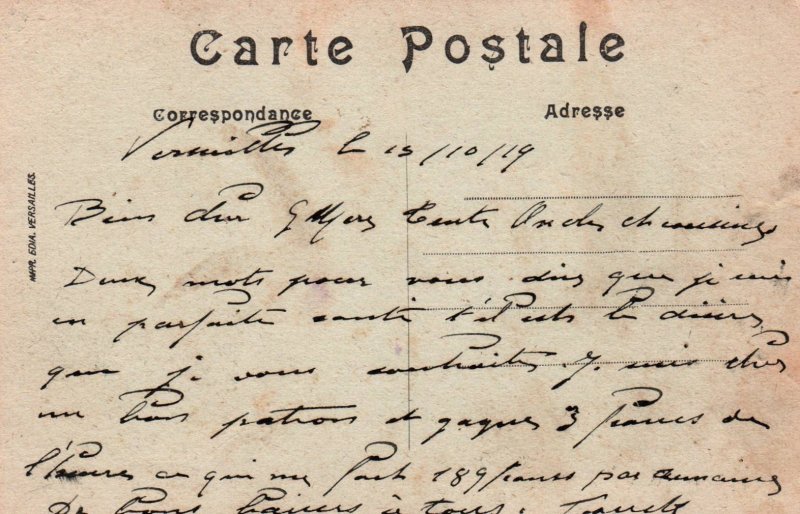 Carte Postale
Correspondance
Adresse
IMPR. EDIA. VERSAILLES.
Versailles le 13/10/19
Bien cher Mere Tente Oncle
Deux mots pour vous dire que je suis
en parfaite santé
que je vous souhaite. Je suis chez
un bon patron et gagne 3 francs de
l'heure ce qui me fait 189 francs par semaine
De bons baisers à tous.